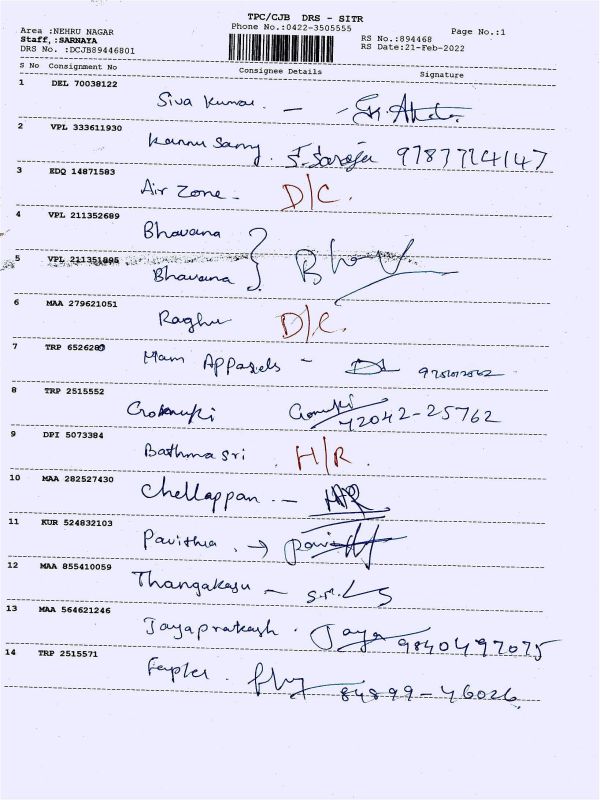 TPC/CJB DRS - SITR
Phone No.:0422-3505555
Area :NEHRU NAGAR
Staff, :SARNAYA
DRS No. :DCJB89446801
RS No.:894468
RS Date:21-Feb-2022
Page No.:1
S No Consignment No Consignee Details Signature
1 DEL 70038122
Siva Kumar. -
2 VPL 333611930
Kannu Samy. S. Saroja 9787724147
3 EDQ 14871583
Air Zone - D/C.
4 VPL 211352689
Bhavana
5 VPL 211351895
Bhavana
6 MAA 279621051
Raghu D/C.
7 TRP 652628
Mam Apparels -
8 TRP 2515552
72042-25762
9 DPI 5073384
Bathma sri. H/R.
10 MAA 282527430
Chellappan. -
11 KUR 524832103
Pavithra. →
12 MAA 855410059
Thangakasu -
13 MAA 564621246
Jayaprakash. Jaya 9840497075
14 TRP 2515571
84899-46026